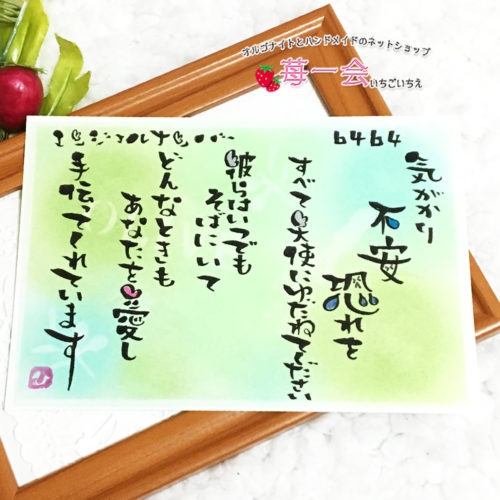 オルゴナイトとハンドメイドのネットショップ
苺一会
いちごいちえ
エンジェルナンバー 6464
気がかり
不安
恐れを
すべて天使にゆだねてください
彼らはいつでも
そばにいて
どんなときも
あなたを愛し
手伝ってくれています
ひ